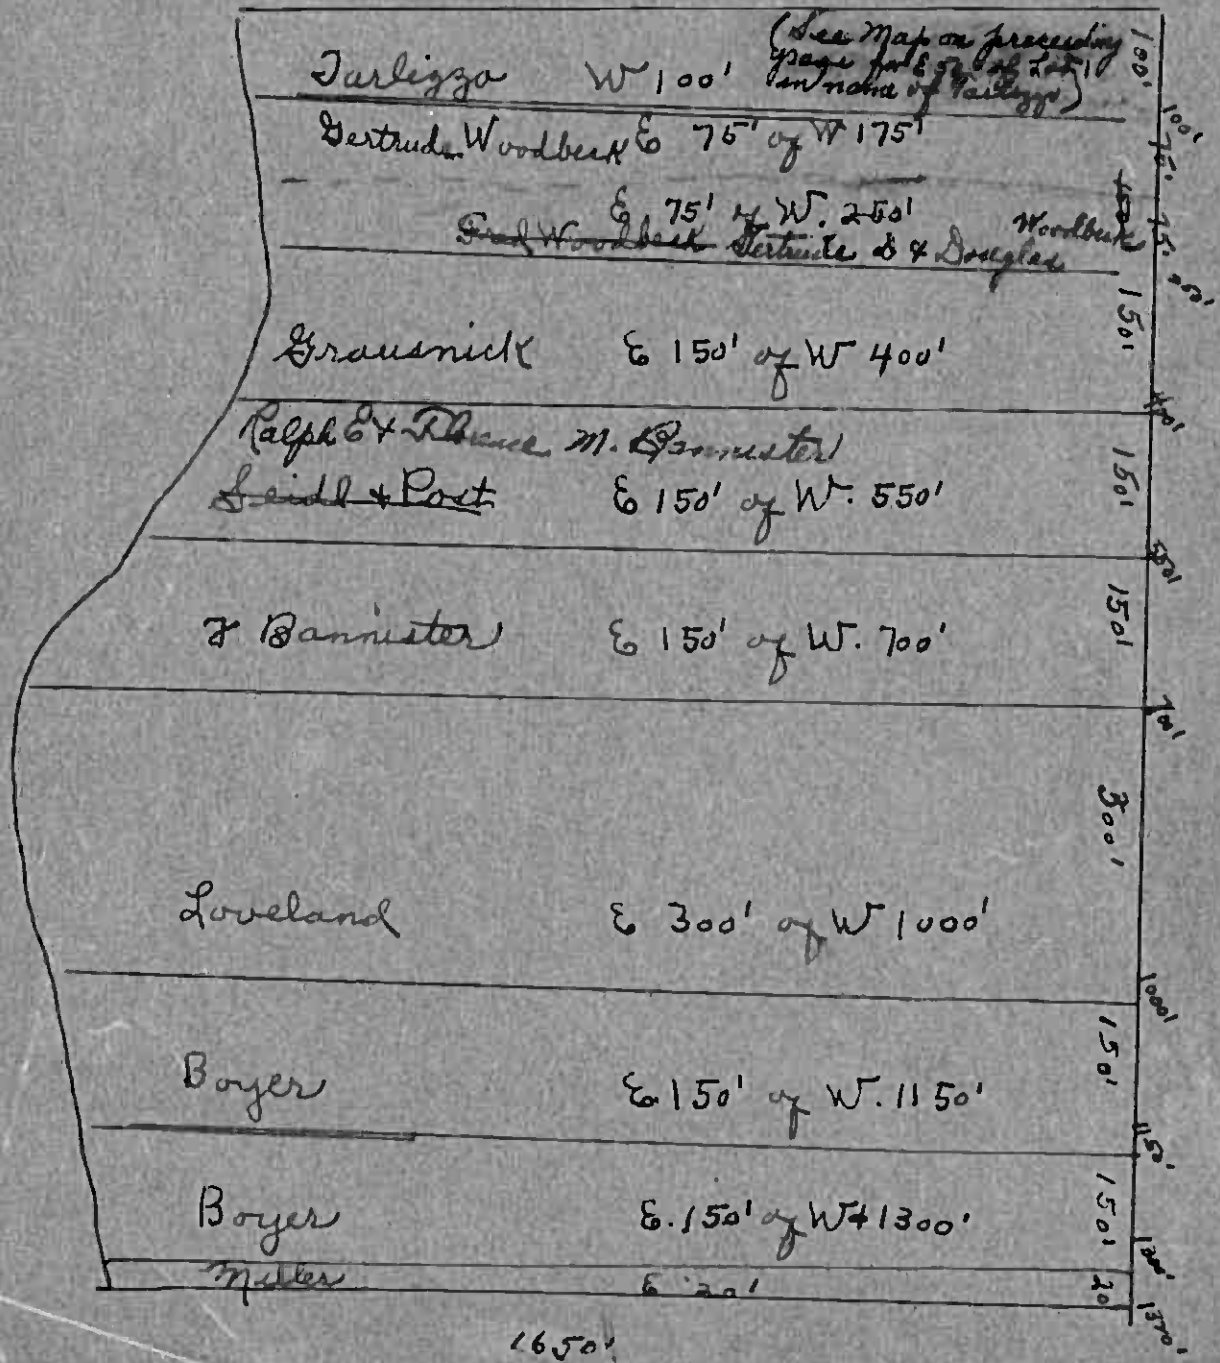 Tarlizzo W 100' (See Map on preceding
page for E 50' of Lot 1
in name of Tarlizzo)
100'
100'
Gertrude Woodbeck E 75' of W 175'
75'
E 75' of W. 250'
Fred Woodbeck Gertrude & Douglas Woodbeck
75'
250'
Grausnick E 150' of W 400'
150'
400'
Ralph E & Florence M. Bannister
Seidl & Post E 150' of W. 550'
150'
550'
F Bannister E 150' of W. 700'
150'
700'
300'
Loveland E 300' of W 1000'
1000'
Boyer E 150' of W. 1150'
150'
1150'
Boyer E. 150' of W 1300'
150'
1300'
Miller E 20'
20
1320'
1650'